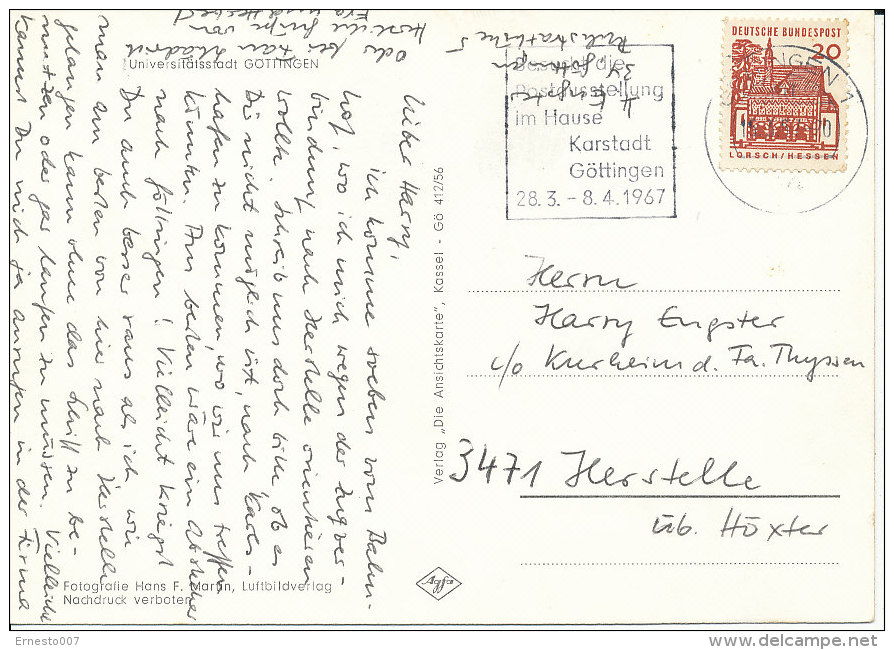 Universitätsstadt GÖTTINGEN
Lieber Harry,
ich komme soeben vom Bahn-
hof, wo ich mich wegen der Zugver-
bindung nach Herstelle orientieren
wollte. Schreib uns doch bitte ob es
Dir nicht möglich ist, nach
zu kommen, wo wir uns treffen
könnten. Am besten wäre ein Abstecher
nach Göttingen! Vielleicht kriegst
Du auch besser raus als ich wie
man am besten von hier nach Herstelle
gelangen kann ohne das Schiff zu be-
nutzen oder gar laufen zu müssen. Vielleicht
kannst Du mich ja anrufen in der Firma
oder bei Frau
Herzliche Grüße von
Eva und Herbert
H. Engster
34 Göttingen
5
Fotografie Hans F. Martin, Luftbildverlag
Nachdruck verboten
Verlag „Die Ansichtskarte", Kassel - Gö 412/56
Agfa
die
Postausstellung
im Hause
Karstadt
Göttingen
28. 3. - 8. 4. 1967
DEUTSCHE BUNDESPOST
20
LORSCH/HESSEN
Herrn
Harry Engster
c/o Kurheim d. Fa. Thyssen
3471 Herstelle
üb. Höxter
Ernesto007
delcampe.net